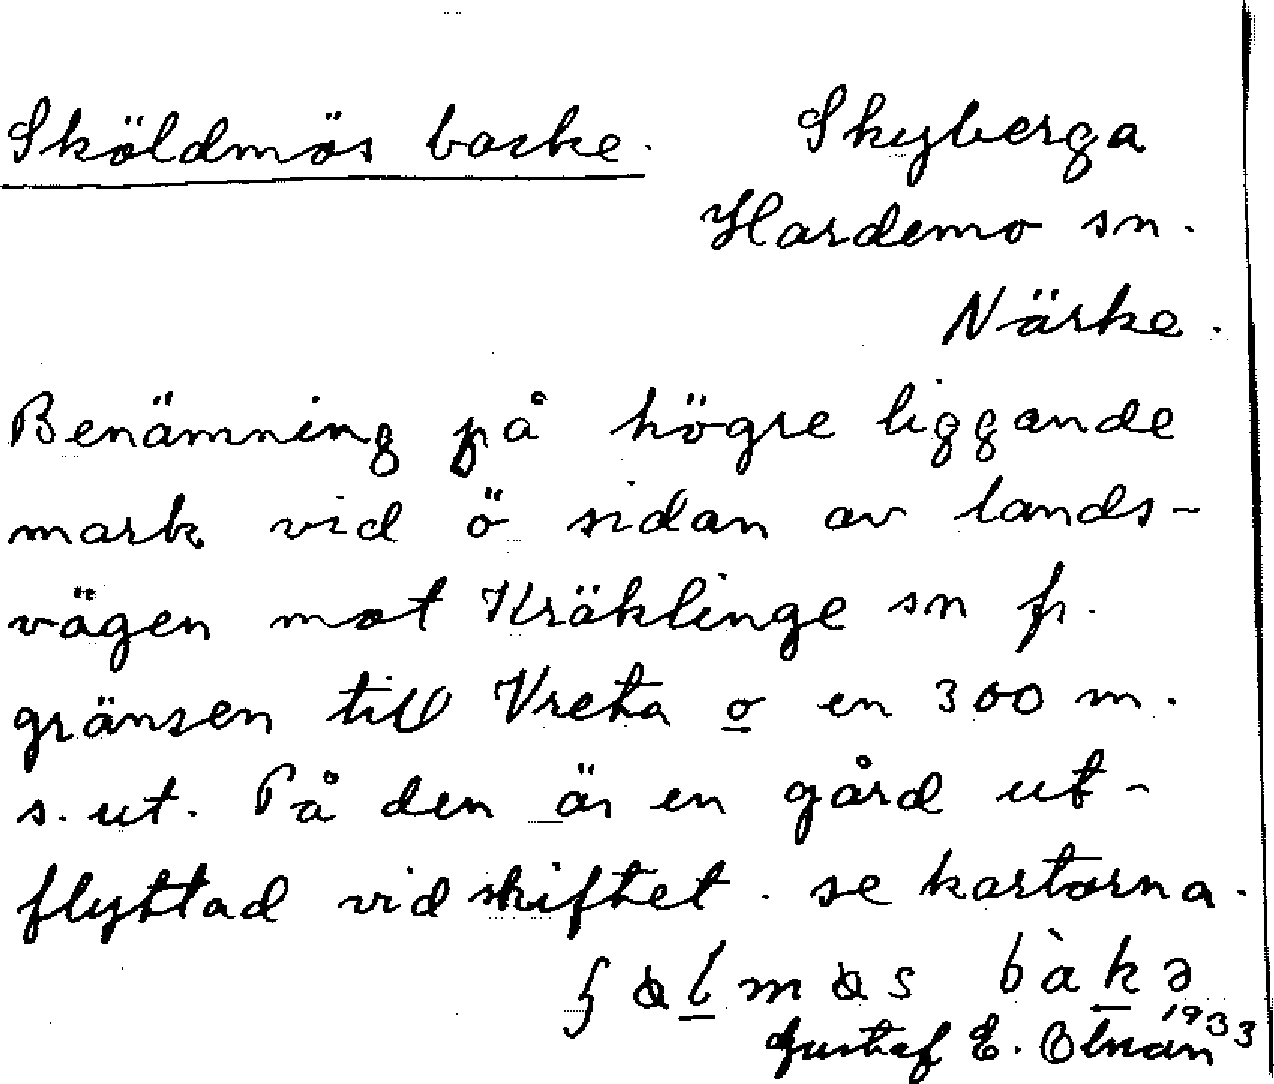 Sköldmös backe. Skyberga
Hardemo sn.
Närke.
Benämning på högre liggande
mark vid ö sidan av lands-
vägen mot Kräklinge sn fr.
gränsen till Vreta o en 300 m.
s. ut. På den är en gård ut-
flyttad vid skiftet. se kartorna.
bàkə
1933
Gustaf E.